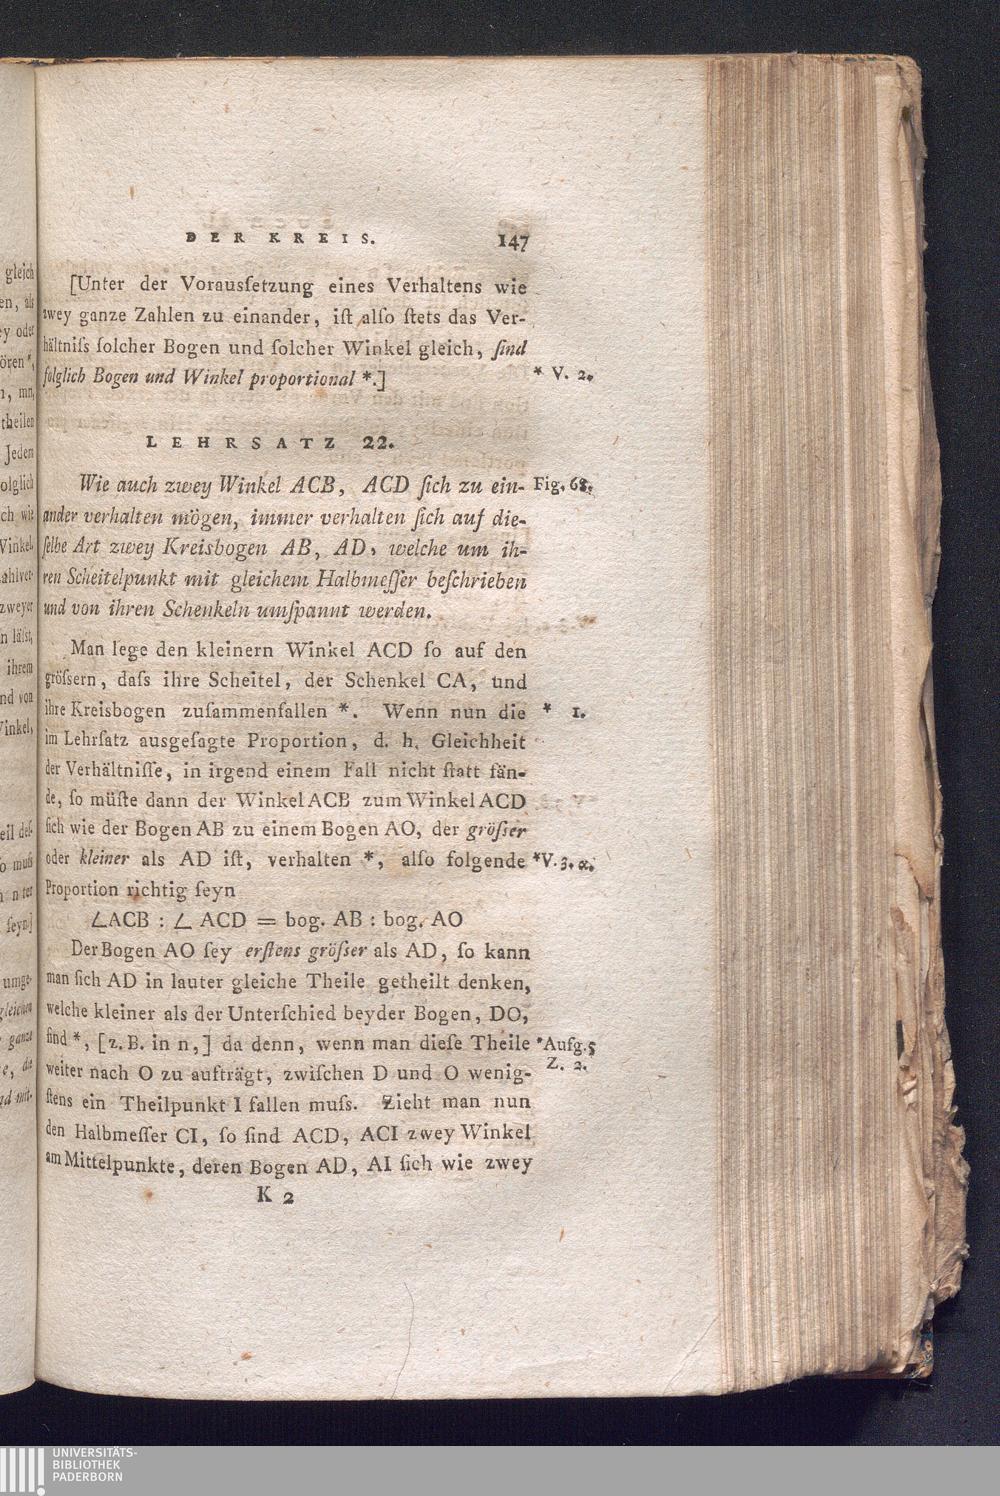 DER KREIS. 147
[Unter der Vorausſetzung eines Verhaltens wie
zwey ganze Zahlen zu einander, iſt alſo ſtets das Ver-
hältniſs ſolcher Bogen und ſolcher Winkel gleich, ſind
folglich Bogen und Winkel proportional *.] * V. 2.
LEHRSATZ 22.
Wie auch zwey Winkel ACB, ACD ſich zu ein- Fig. 68.
ander verhalten mögen, immer verhalten ſich auf die-
ſelbe Art zwey Kreisbogen AB, AD, welche um ih-
ren Scheitelpunkt mit gleichem Halbmeſſer beſchrieben
und von ihren Schenkeln umſpannt werden.
Man lege den kleinern Winkel ACD ſo auf den
gröſsern, daſs ihre Scheitel, der Schenkel CA, und
ihre Kreisbogen zuſammenfallen *. Wenn nun die * 1.
im Lehrſatz ausgeſagte Proportion, d. h. Gleichheit
der Verhältniſſe, in irgend einem Fall nicht ſtatt fän-
de, ſo müſte dann der Winkel ACB zum Winkel ACD
ſich wie der Bogen AB zu einem Bogen AO, der gröſser
oder kleiner als AD iſt, verhalten *, alſo folgende *V. 3. α.
Proportion richtig ſeyn
∠ACB : ∠ ACD = bog. AB : bog. AO
Der Bogen AO ſey erſtens gröſser als AD, ſo kann
man ſich AD in lauter gleiche Theile getheilt denken,
welche kleiner als der Unterſchied beyder Bogen, DO,
ſind *, [z. B. in n,] da denn, wenn man dieſe Theile *Aufg. 5
weiter nach O zu aufträgt, zwiſchen D und O wenig- Z. 2.
ſtens ein Theilpunkt I fallen muſs. Zieht man nun
den Halbmeſſer CI, ſo ſind ACD, ACI zwey Winkel
am Mittelpunkte, deren Bogen AD, AI ſich wie zwey
K 2
UNIVERSITÄTS-
BIBLIOTHEK
PADERBORN